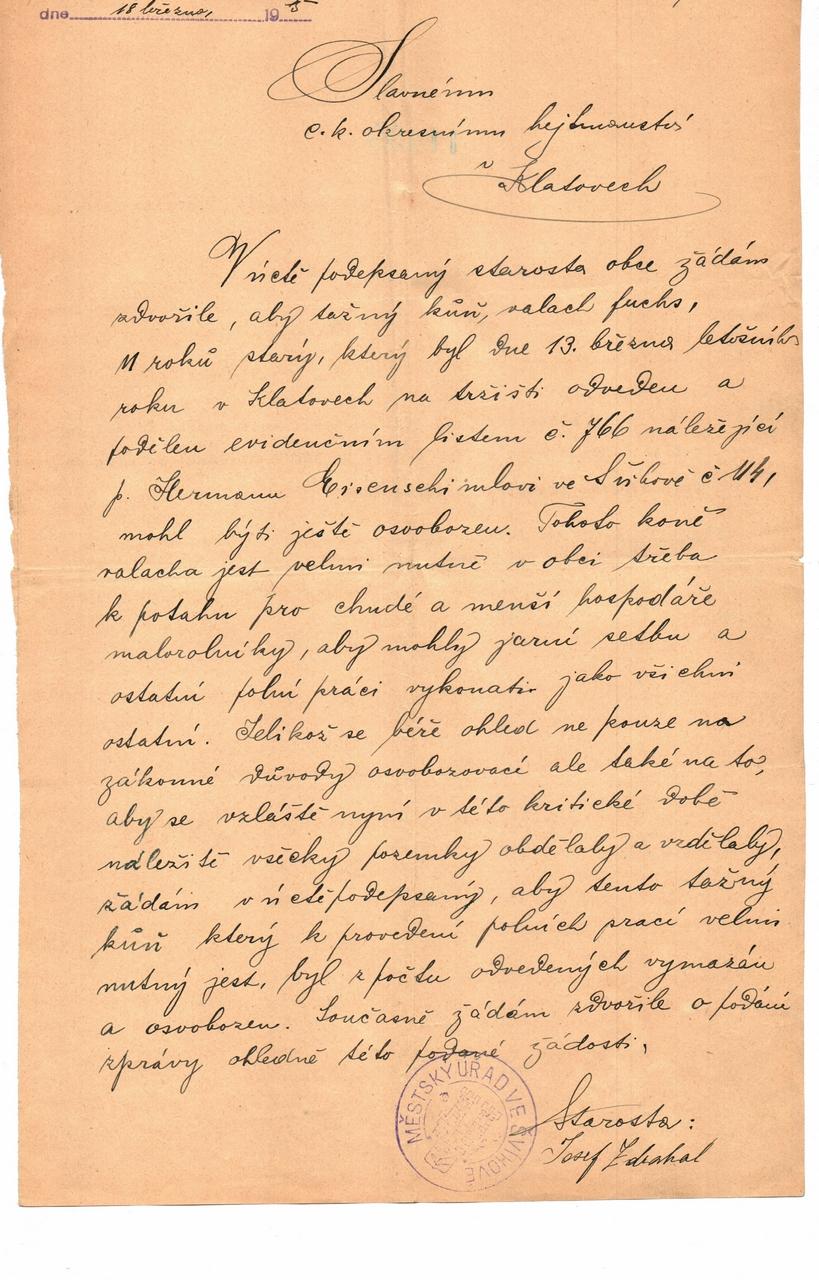 dne 18 března, 19 15
Slavnému
c. k. okresnímu hejtmanství
v Klatovech
V úctě podepsaný starosta obce žádám
zdvořile, aby tažný kůň, valach fuchs,
11 roků starý, který byl dne 13. března letošního
roku v Klatovech na tržišti odveden a
podělen evidenčním listem č. 766 náležející
p. Hermanu Eisenschimlovi ve Švihově č 114,
mohl býti ještě osvobozen. Tohoto koně
valacha jest velmi nutně v obci třeba
k potahu pro chudé a menší hospodáře
malorolníky, aby mohly jarní setbu a
ostatní polní práci vykonati jako všichni
ostatní. Jelikož se béře ohled ne pouze na
zákonné důvody osvobozovací ale také na to,
aby se vzláště nyní v této kritické době
náležitě všecky pozemky obdělaby a vzdělaby,
žádám v úctě podepsaný, aby tento tažný
kůň který k provedení polních prací velmi
nutný jest, byl z počtu odvedených vymazán
a osvobozen. Současně žádám zdvořile o podání
zprávy ohledně této podané žádosti.
MĚSTSKÝ ÚŘAD VE ŠVIHOVĚ
Starosta:
Josef Zdrahal